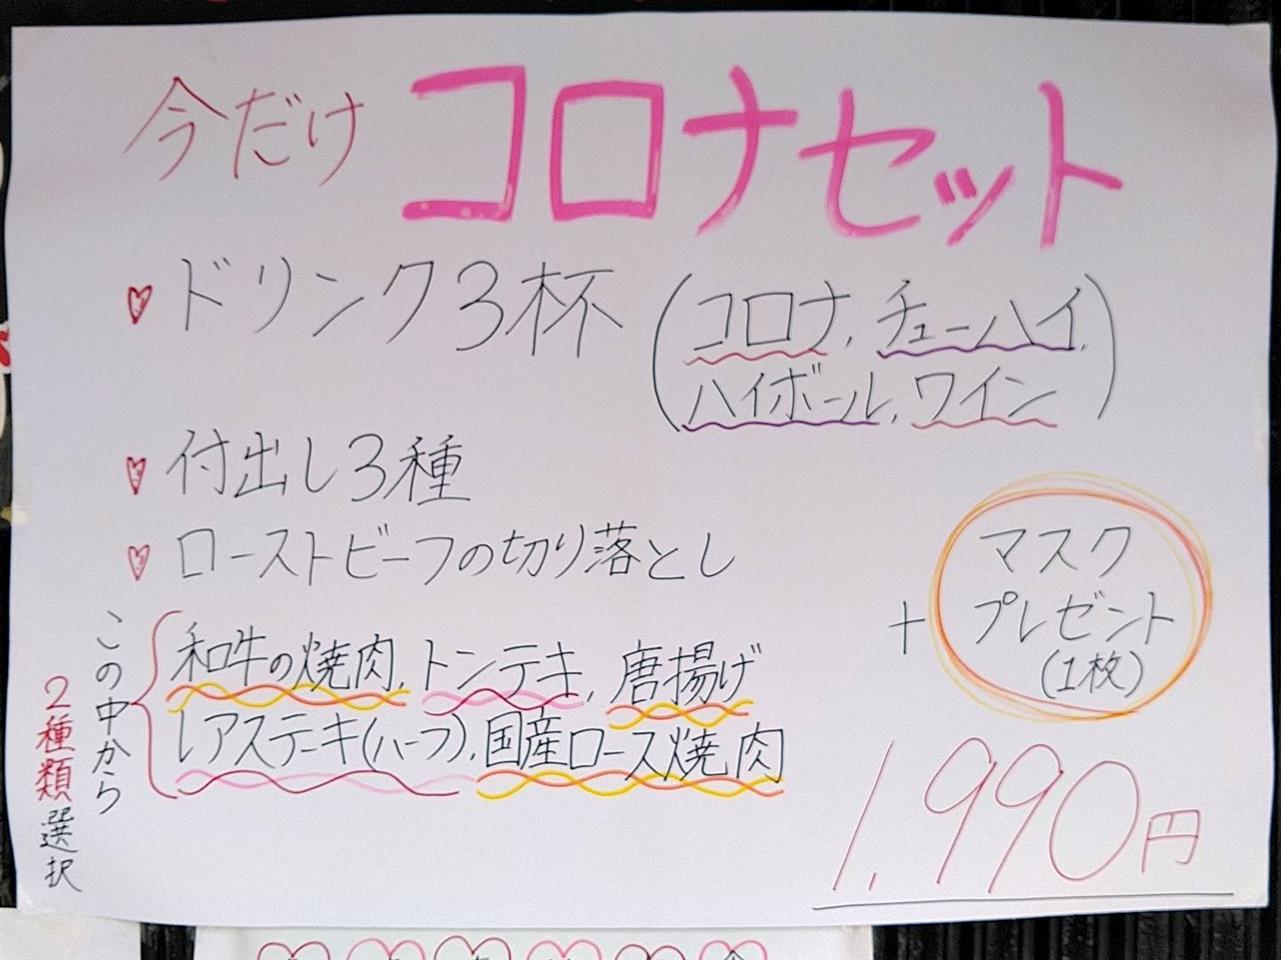 今だけ コロナセット
ドリンク3杯 (コロナ, チューハイ,
ハイボール, ワイン)
付出し3種
ローストビーフの切り落とし
この中から
2種類選択
和牛の焼肉, トンテキ, 唐揚げ
レアステーキ(ハーフ), 国産ロース焼肉
+ マスク
プレゼント
(1枚)
1,990円